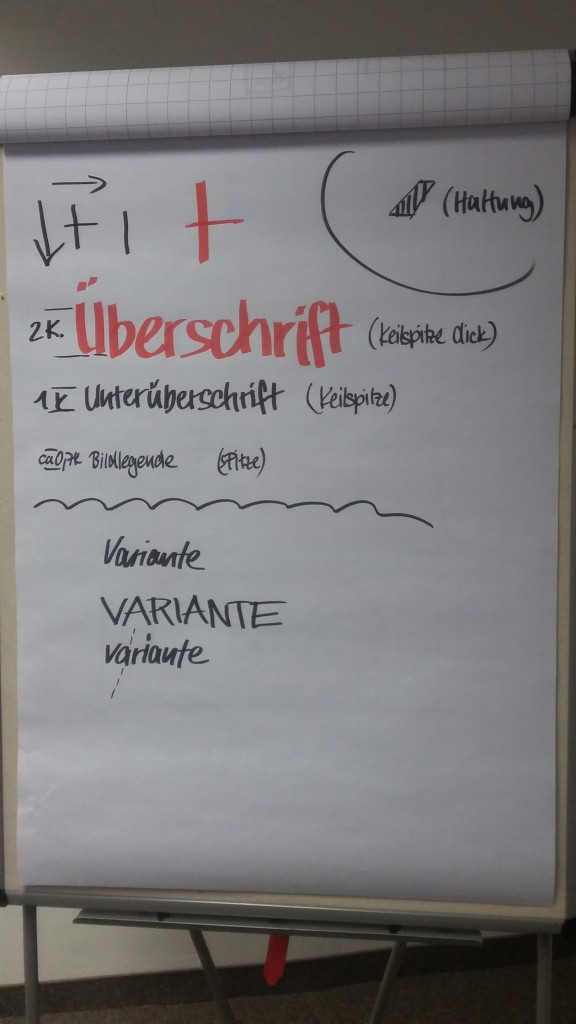 (Haltung)
2K. Überschrift (Keilspitze dick)
1K Unterüberschrift (Keilspitze)
Bildlegende (Spitze)
Variante
VARIANTE
variante